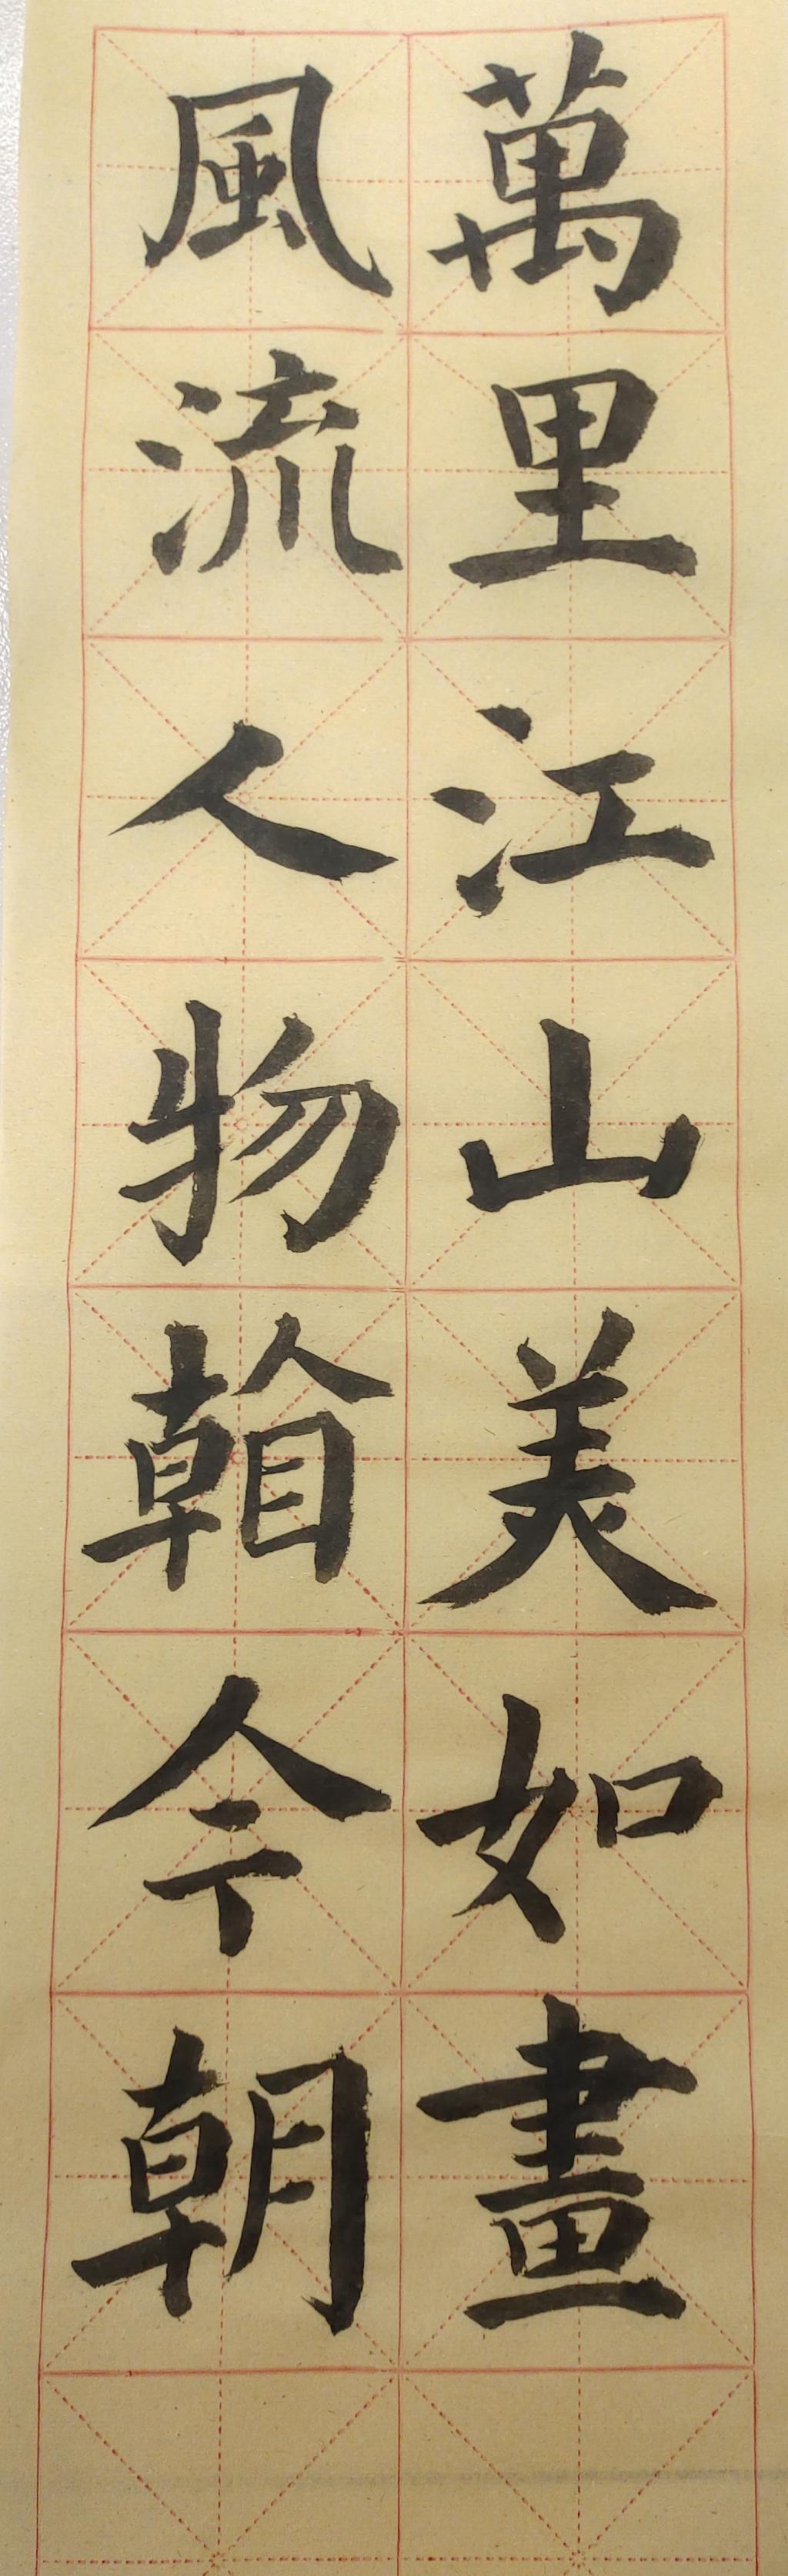 萬里江山美如畫
風流人物看今朝